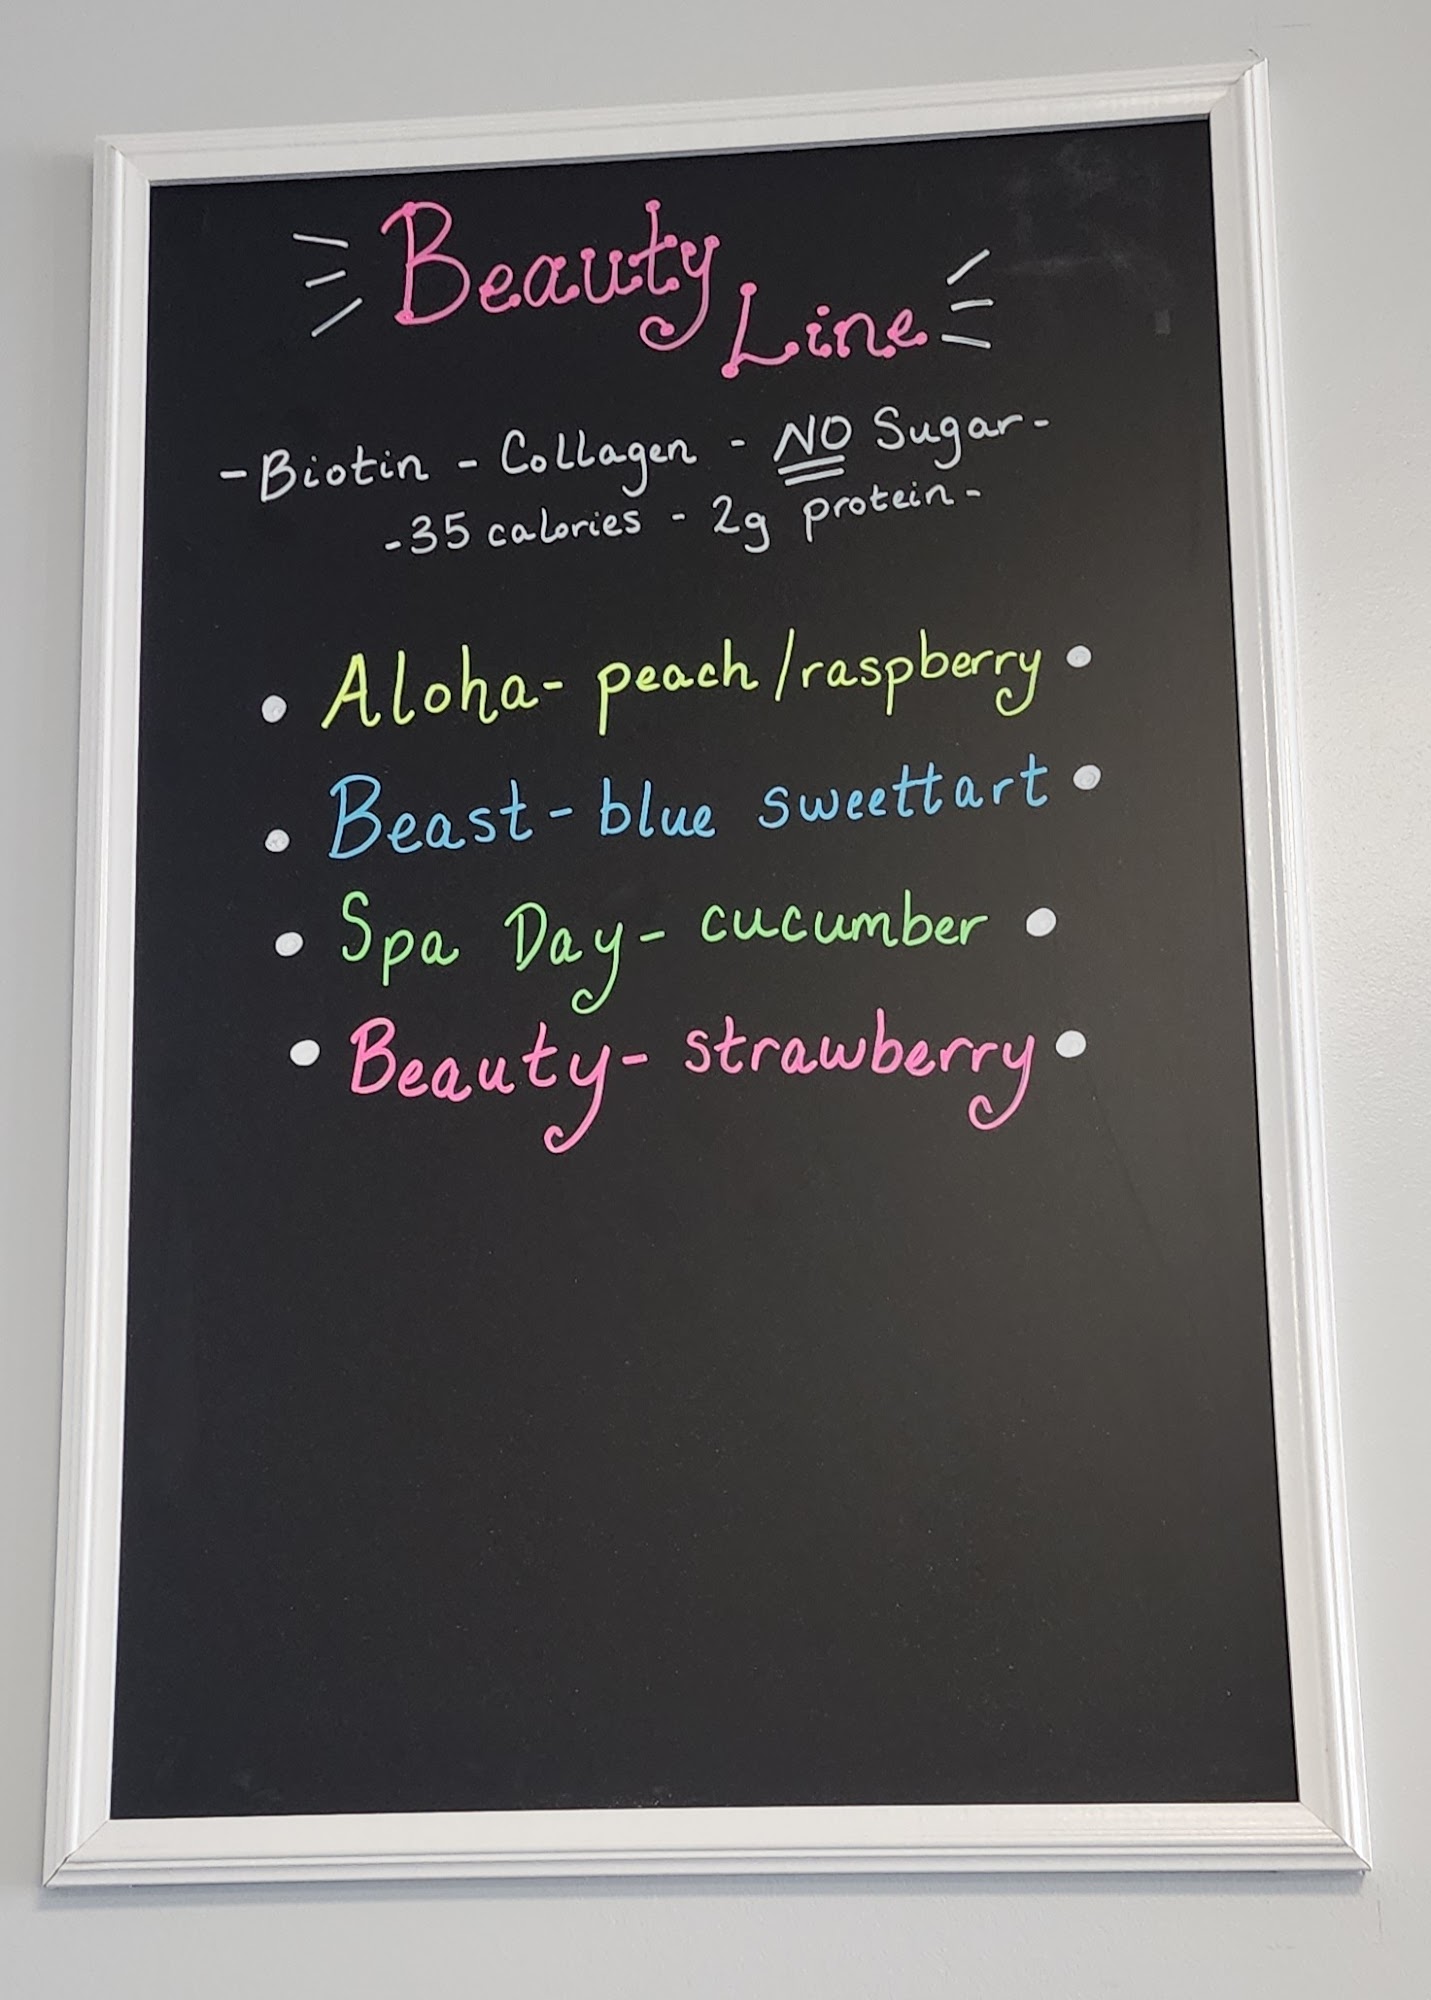 Beauty Line
- Biotin - Collagen - NO Sugar -
- 35 calories - 2g protein -
• Aloha - peach/raspberry •
• Beast - blue sweettart •
• Spa Day - cucumber •
• Beauty - strawberry •